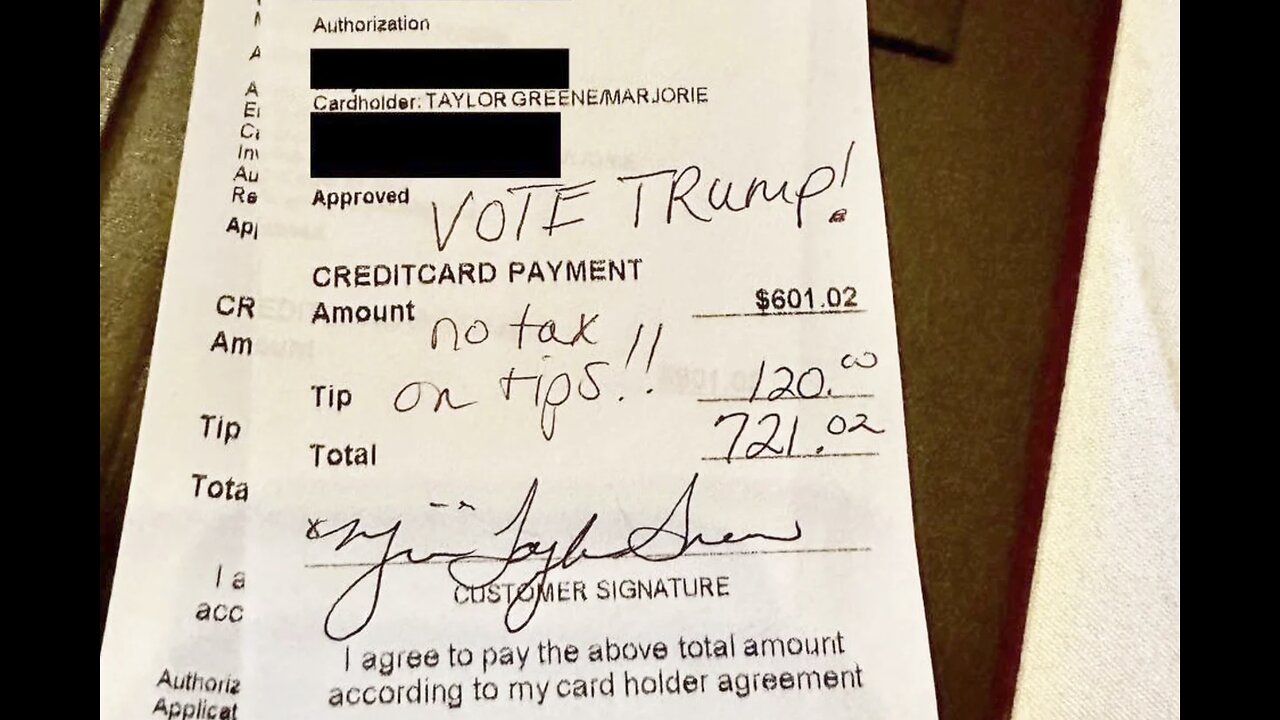 Authorization
Cardholder: TAYLOR GREENE/MARJORIE
Approved VOTE TRump!
CREDITCARD PAYMENT
Amount $601.02
no tax
on tips!!
Tip 120.00
Total 721.02
x Marjorie Taylor Greene
CUSTOMER SIGNATURE
I agree to pay the above total amount
according to my card holder agreement
A
A
Ei
Ca
Inv
Au
Re
App
CR
Am
Tip
Tota
I a
acc
Authoriz
Applicat